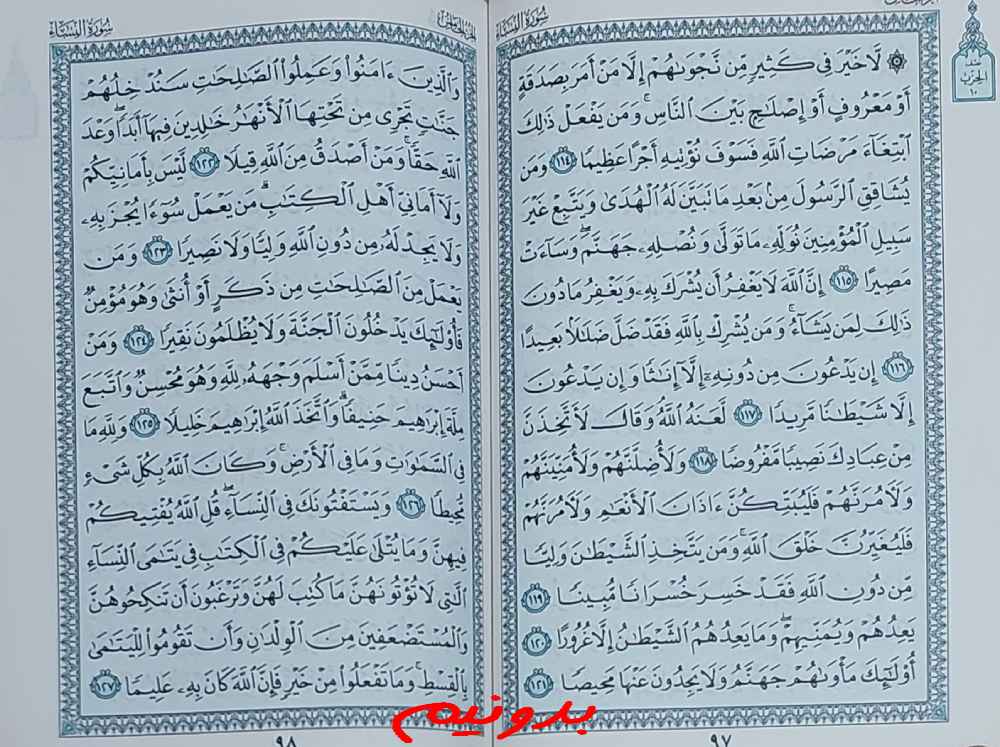 سُورَةُ النِّسَاءِ
۞ لَّا خَيْرَ فِي كَثِيرٍ مِّن نَّجْوَىٰهُمْ إِلَّا مَنْ أَمَرَ بِصَدَقَةٍ
أَوْ مَعْرُوفٍ أَوْ إِصْلَٰحٍۭ بَيْنَ النَّاسِۚ وَمَن يَفْعَلْ ذَٰلِكَ
ابْتِغَآءَ مَرْضَاتِ اللَّهِ فَسَوْفَ نُؤْتِيهِ أَجْرًا عَظِيمًا ١١٤ وَمَن
يُشَاقِقِ الرَّسُولَ مِنۢ بَعْدِ مَا تَبَيَّنَ لَهُ الْهُدَىٰ وَيَتَّبِعْ غَيْرَ
سَبِيلِ الْمُؤْمِنِينَ نُوَلِّهِۦ مَا تَوَلَّىٰ وَنُصْلِهِۦ جَهَنَّمَۖ وَسَآءَتْ
مَصِيرًا ١١٥ إِنَّ اللَّهَ لَا يَغْفِرُ أَن يُشْرَكَ بِهِۦ وَيَغْفِرُ مَا دُونَ
ذَٰلِكَ لِمَن يَشَآءُۚ وَمَن يُشْرِكْ بِاللَّهِ فَقَدْ ضَلَّ ضَلَٰلًۢا بَعِيدًا
١١٦ إِن يَدْعُونَ مِن دُونِهِۦٓ إِلَّآ إِنَٰثًا وَإِن يَدْعُونَ
إِلَّا شَيْطَٰنًا مَّرِيدًا ١١٧ لَّعَنَهُ اللَّهُۘ وَقَالَ لَأَتَّخِذَنَّ
مِنْ عِبَادِكَ نَصِيبًا مَّفْرُوضًا ١١٨ وَلَأُضِلَّنَّهُمْ وَلَأُمَنِّيَنَّهُمْ
وَلَءَامُرَنَّهُمْ فَلَيُبَتِّكُنَّ ءَاذَانَ الْأَنْعَٰمِ وَلَءَامُرَنَّهُمْ
فَلَيُغَيِّرُنَّ خَلْقَ اللَّهِۚ وَمَن يَتَّخِذِ الشَّيْطَٰنَ وَلِيًّا
مِّن دُونِ اللَّهِ فَقَدْ خَسِرَ خُسْرَانًا مُّبِينًا ١١٩
يَعِدُهُمْ وَيُمَنِّيهِمْۖ وَمَا يَعِدُهُمُ الشَّيْطَٰنُ إِلَّا غُرُورًا ١٢٠
أُو۟لَٰٓئِكَ مَأْوَىٰهُمْ جَهَنَّمُ وَلَا يَجِدُونَ عَنْهَا مَحِيصًا ١٢١
٩٧
الحزب
١٠
سُورَةُ النِّسَاءِ
وَالَّذِينَ ءَامَنُوا۟ وَعَمِلُوا۟ الصَّٰلِحَٰتِ سَنُدْخِلُهُمْ
جَنَّٰتٍ تَجْرِي مِن تَحْتِهَا الْأَنْهَٰرُ خَٰلِدِينَ فِيهَآ أَبَدًاۖ وَعْدَ
اللَّهِ حَقًّاۚ وَمَنْ أَصْدَقُ مِنَ اللَّهِ قِيلًا ١٢٢ لَّيْسَ بِأَمَانِيِّكُمْ
وَلَآ أَمَانِيِّ أَهْلِ الْكِتَٰبِۗ مَن يَعْمَلْ سُوٓءًا يُجْزَ بِهِۦ
وَلَا يَجِدْ لَهُۥ مِن دُونِ اللَّهِ وَلِيًّا وَلَا نَصِيرًا ١٢٣ وَمَن
يَعْمَلْ مِنَ الصَّٰلِحَٰتِ مِن ذَكَرٍ أَوْ أُنثَىٰ وَهُوَ مُؤْمِنٌ
فَأُو۟لَٰٓئِكَ يَدْخُلُونَ الْجَنَّةَ وَلَا يُظْلَمُونَ نَقِيرًا ١٢٤ وَمَنْ
أَحْسَنُ دِينًا مِّمَّنْ أَسْلَمَ وَجْهَهُۥ لِلَّهِ وَهُوَ مُحْسِنٌ وَاتَّبَعَ
مِلَّةَ إِبْرَٰهِيمَ حَنِيفًاۗ وَاتَّخَذَ اللَّهُ إِبْرَٰهِيمَ خَلِيلًا ١٢٥ وَلِلَّهِ مَا
فِي السَّمَٰوَٰتِ وَمَا فِي الْأَرْضِۚ وَكَانَ اللَّهُ بِكُلِّ شَيْءٍ
مُّحِيطًا ١٢٦ وَيَسْتَفْتُونَكَ فِي النِّسَآءِۖ قُلِ اللَّهُ يُفْتِيكُمْ
فِيهِنَّ وَمَا يُتْلَىٰ عَلَيْكُمْ فِي الْكِتَٰبِ فِي يَتَٰمَى النِّسَآءِ
الَّٰتِي لَا تُؤْتُونَهُنَّ مَا كُتِبَ لَهُنَّ وَتَرْغَبُونَ أَن تَنكِحُوهُنَّ
وَالْمُسْتَضْعَفِينَ مِنَ الْوِلْدَٰنِ وَأَن تَقُومُوا۟ لِلْيَتَٰمَىٰ
بِالْقِسْطِۚ وَمَا تَفْعَلُوا۟ مِنْ خَيْرٍ فَإِنَّ اللَّهَ كَانَ بِهِۦ عَلِيمًا ١٢٧
٩٨
بدونيم